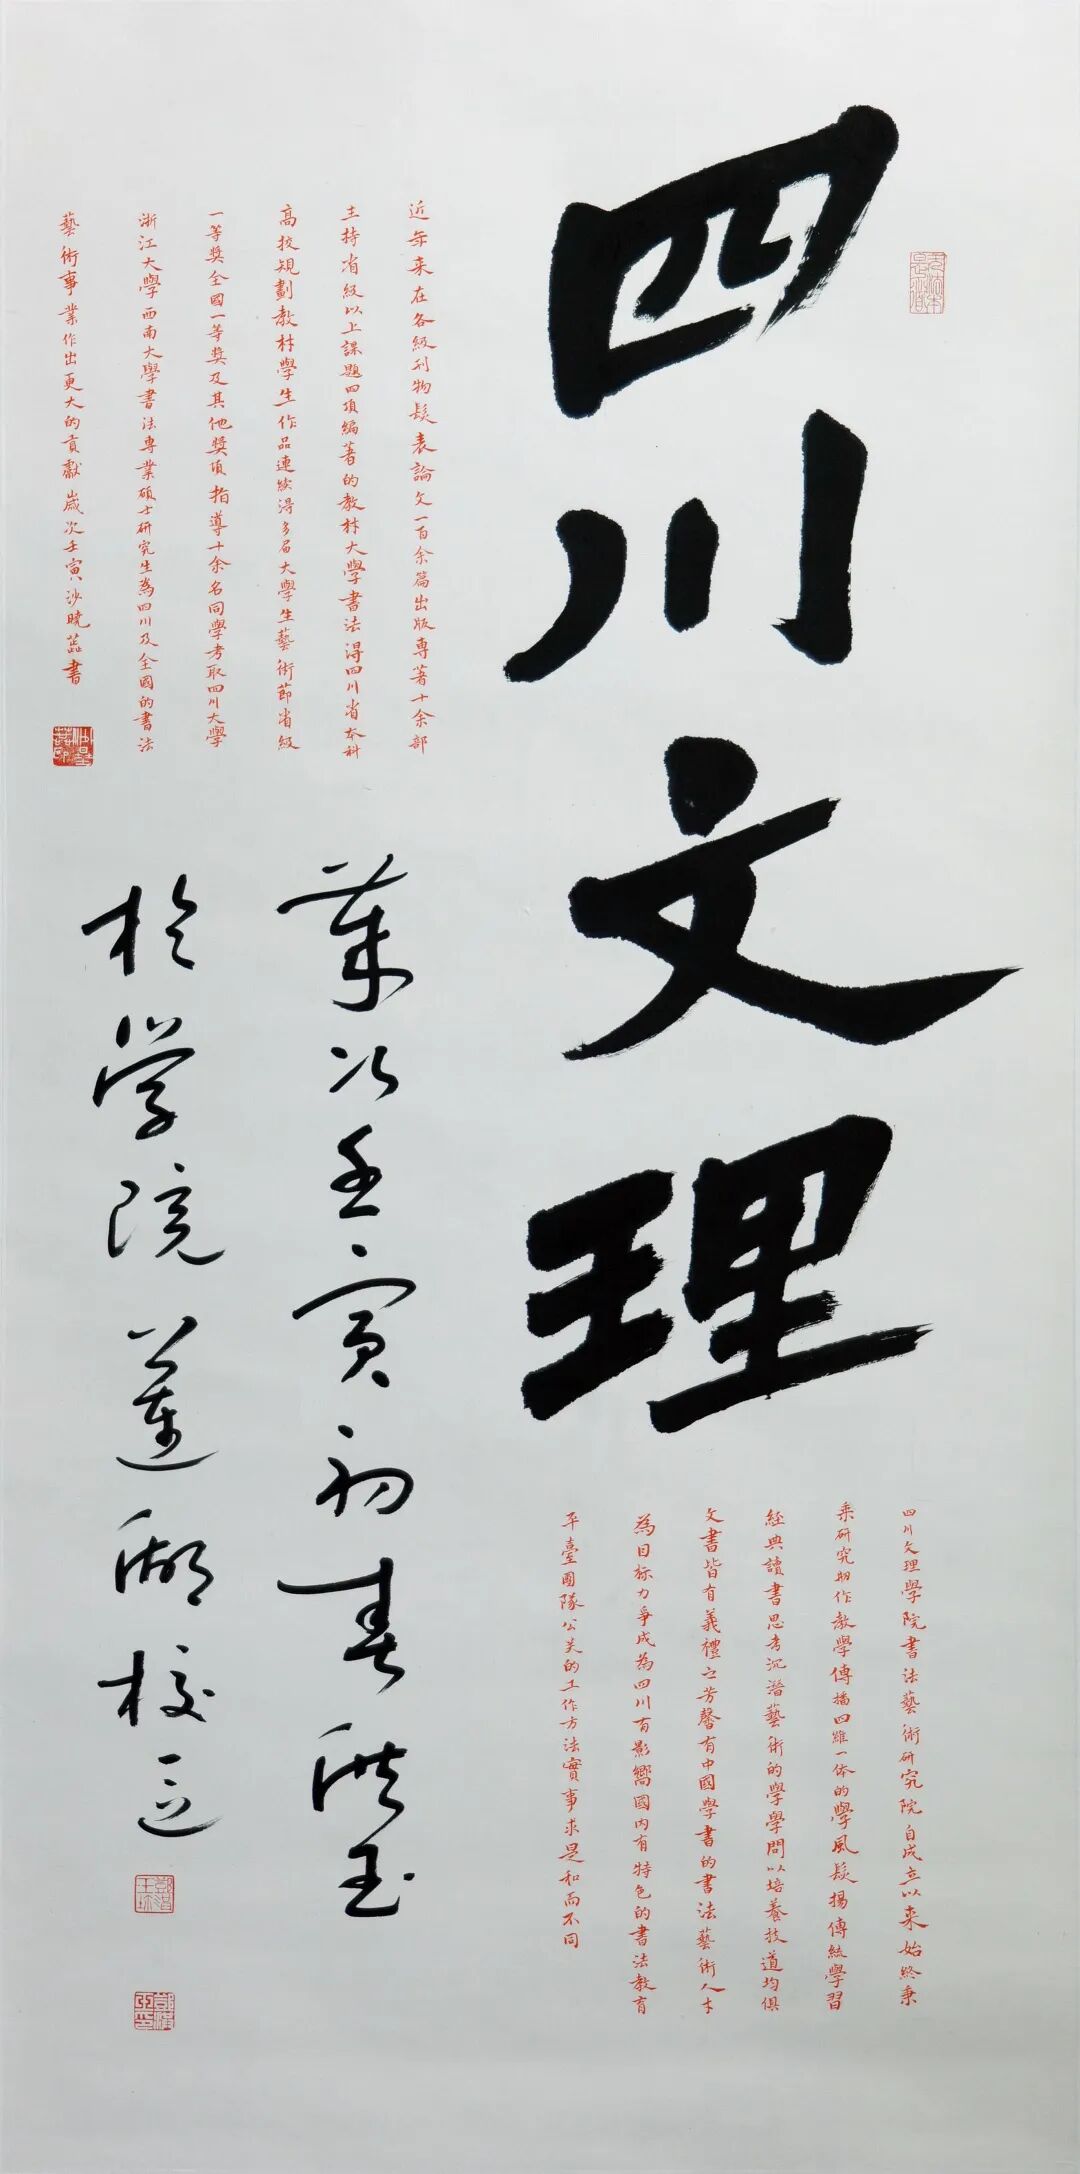 四川文理
四川文理學院書法藝術研究院自成立以来始終秉
乘研究助作教學傳播四雖一体的學風髮揚傳統學習
經典讀書思考沉潛藝術的學學問以培養技道均俱
文書皆有義禮之芳馨有中國學書的書法藝術人才
為目标力爭成為四川有影響國内有特色的書法教育
平臺團隊公关的工作方法實事求是和而不同
近年来在各級刊物髮表論文一百余篇出版專著十余部
主持省級以上課題四項編著的教材大學書法得四川省本科
高校規劃教材學生作品連续得多届大學生藝術節省級
一等獎全國一等獎及其他獎項指導十余名同學考取四川大學
浙江大學西南大學書法專業碩士研究生為四川及全國的書法
藝術事業作出更大的貢獻歲次壬寅沙曉蕊書
歲次壬寅初春洪玉
於学院莲湖校区